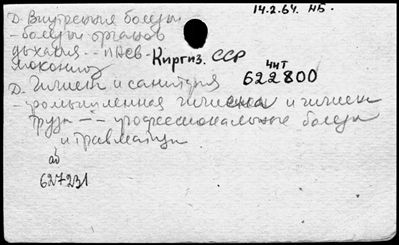 14.2.64. НБ.
Д. Внутренние болезни
- болезни органов
дыхания -- пнев-
мокониоз
Киргиз. ССР
чит
622800
Д. Гигиена и санитария
- промышленная гигиена и гигиена
труда -- профессиональные болезни
и травматизм
627231